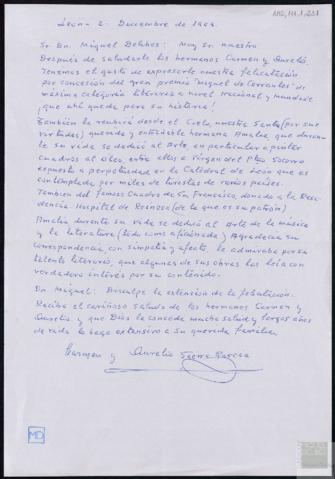 AMD, 111, 1, 231
León - 2. Diciembre de 1993.
Sr. Dn. Miguel Delibes: Muy Sr. nuestro
Después de saludarle los hermanos Carmen y Aurelio.
Tenemos el gusto de expresarle nuestra felicitación
por concesión del gran premio "Miguel de Cervantes" de
máxima categoría literaria a nivel nacional y mundial
que ahí queda para su historia!
También la recibirá desde el Cielo nuestra Santa (por sus
virtudes) querida y hermana Amalia, que duran-
te su vida se dedicó al Arte, en particular a pintar
cuadros al óleo, entre ellos a Virgen del Ptuo Socorro
expuesto a perpetuidad en la Catedral de León que es
contemplado por miles de turistas de varios países.
También del famoso Cuadro de San Francisco donado a la Resi-
dencia Hospital de Reinosa (de la que es su patrón)
Amalia durante su vida se dedicó al arte de la música
y la literatura (todo como aficionada) Agradecía su
correspondencia, con simpatía y afecto. Le admiraba por su
talento literario, que algunas de sus obras las leía con
verdadero interés por su contenido.
Dn Miguel: Disculpe la extensión de la felicitación.
Reciba el cariñoso saludo de los hermanos Carmen y
Aurelio y que Dios le conceda mucha salud y largos años
de vida lo hago extensivo a su querida familia
Carmen y Aurelio García
MD